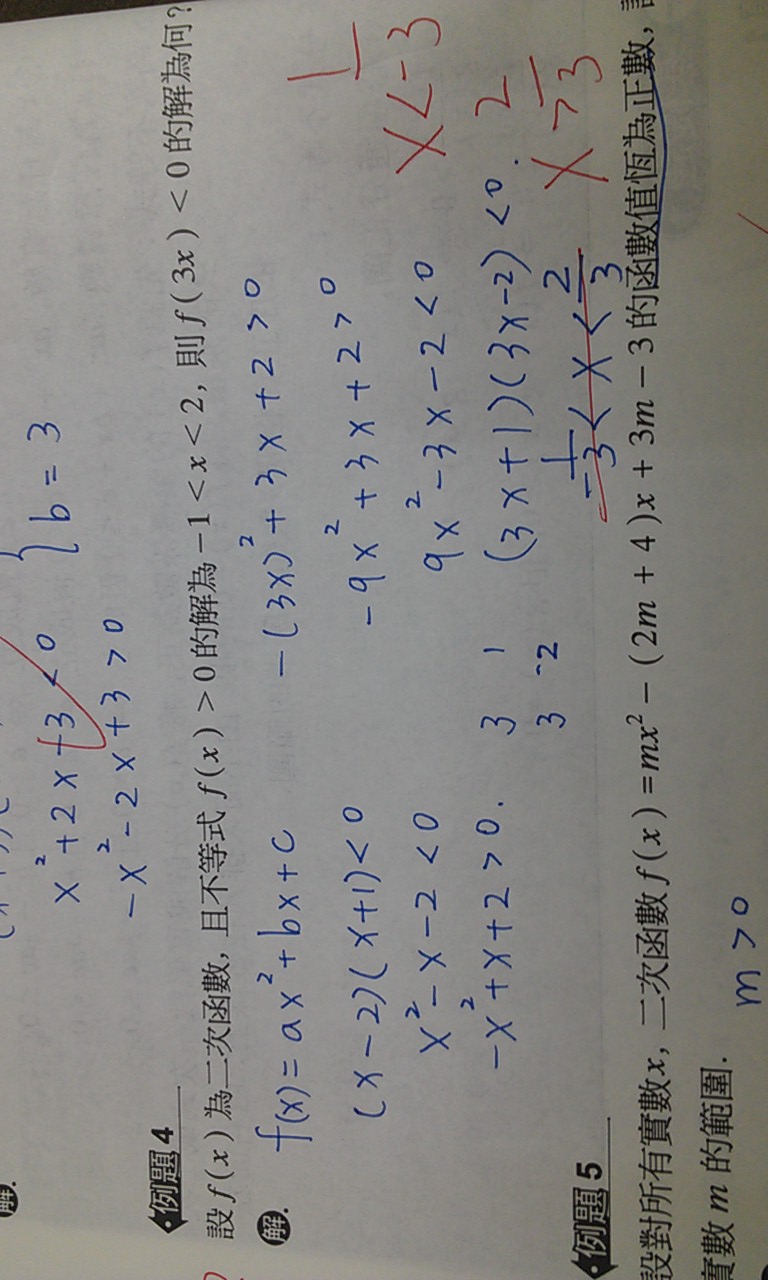 x² + 2x + 3 < 0
{ b = 3
-x² - 2x + 3 > 0
例題 4
設 f(x) 為二次函數, 且不等式 f(x) > 0 的解為 -1 < x < 2, 則 f(3x) < 0 的解為何?
解.
f(x) = ax² + bx + c
(x - 2)(x + 1) < 0
x² - x - 2 < 0
-x² + x + 2 > 0.
-(3x)² + 3x + 2 > 0
-9x² + 3x + 2 > 0
9x² - 3x - 2 < 0
3 1
3 -2
(3x + 1)(3x - 2) < 0.
-1/3 < x < 2/3
x < -1/3
x > 2/3
例題 5
設對所有實數 x, 二次函數 f(x) = mx² - (2m + 4)x + 3m - 3 的函數值恆為正數,
實數 m 的範圍.
m > 0